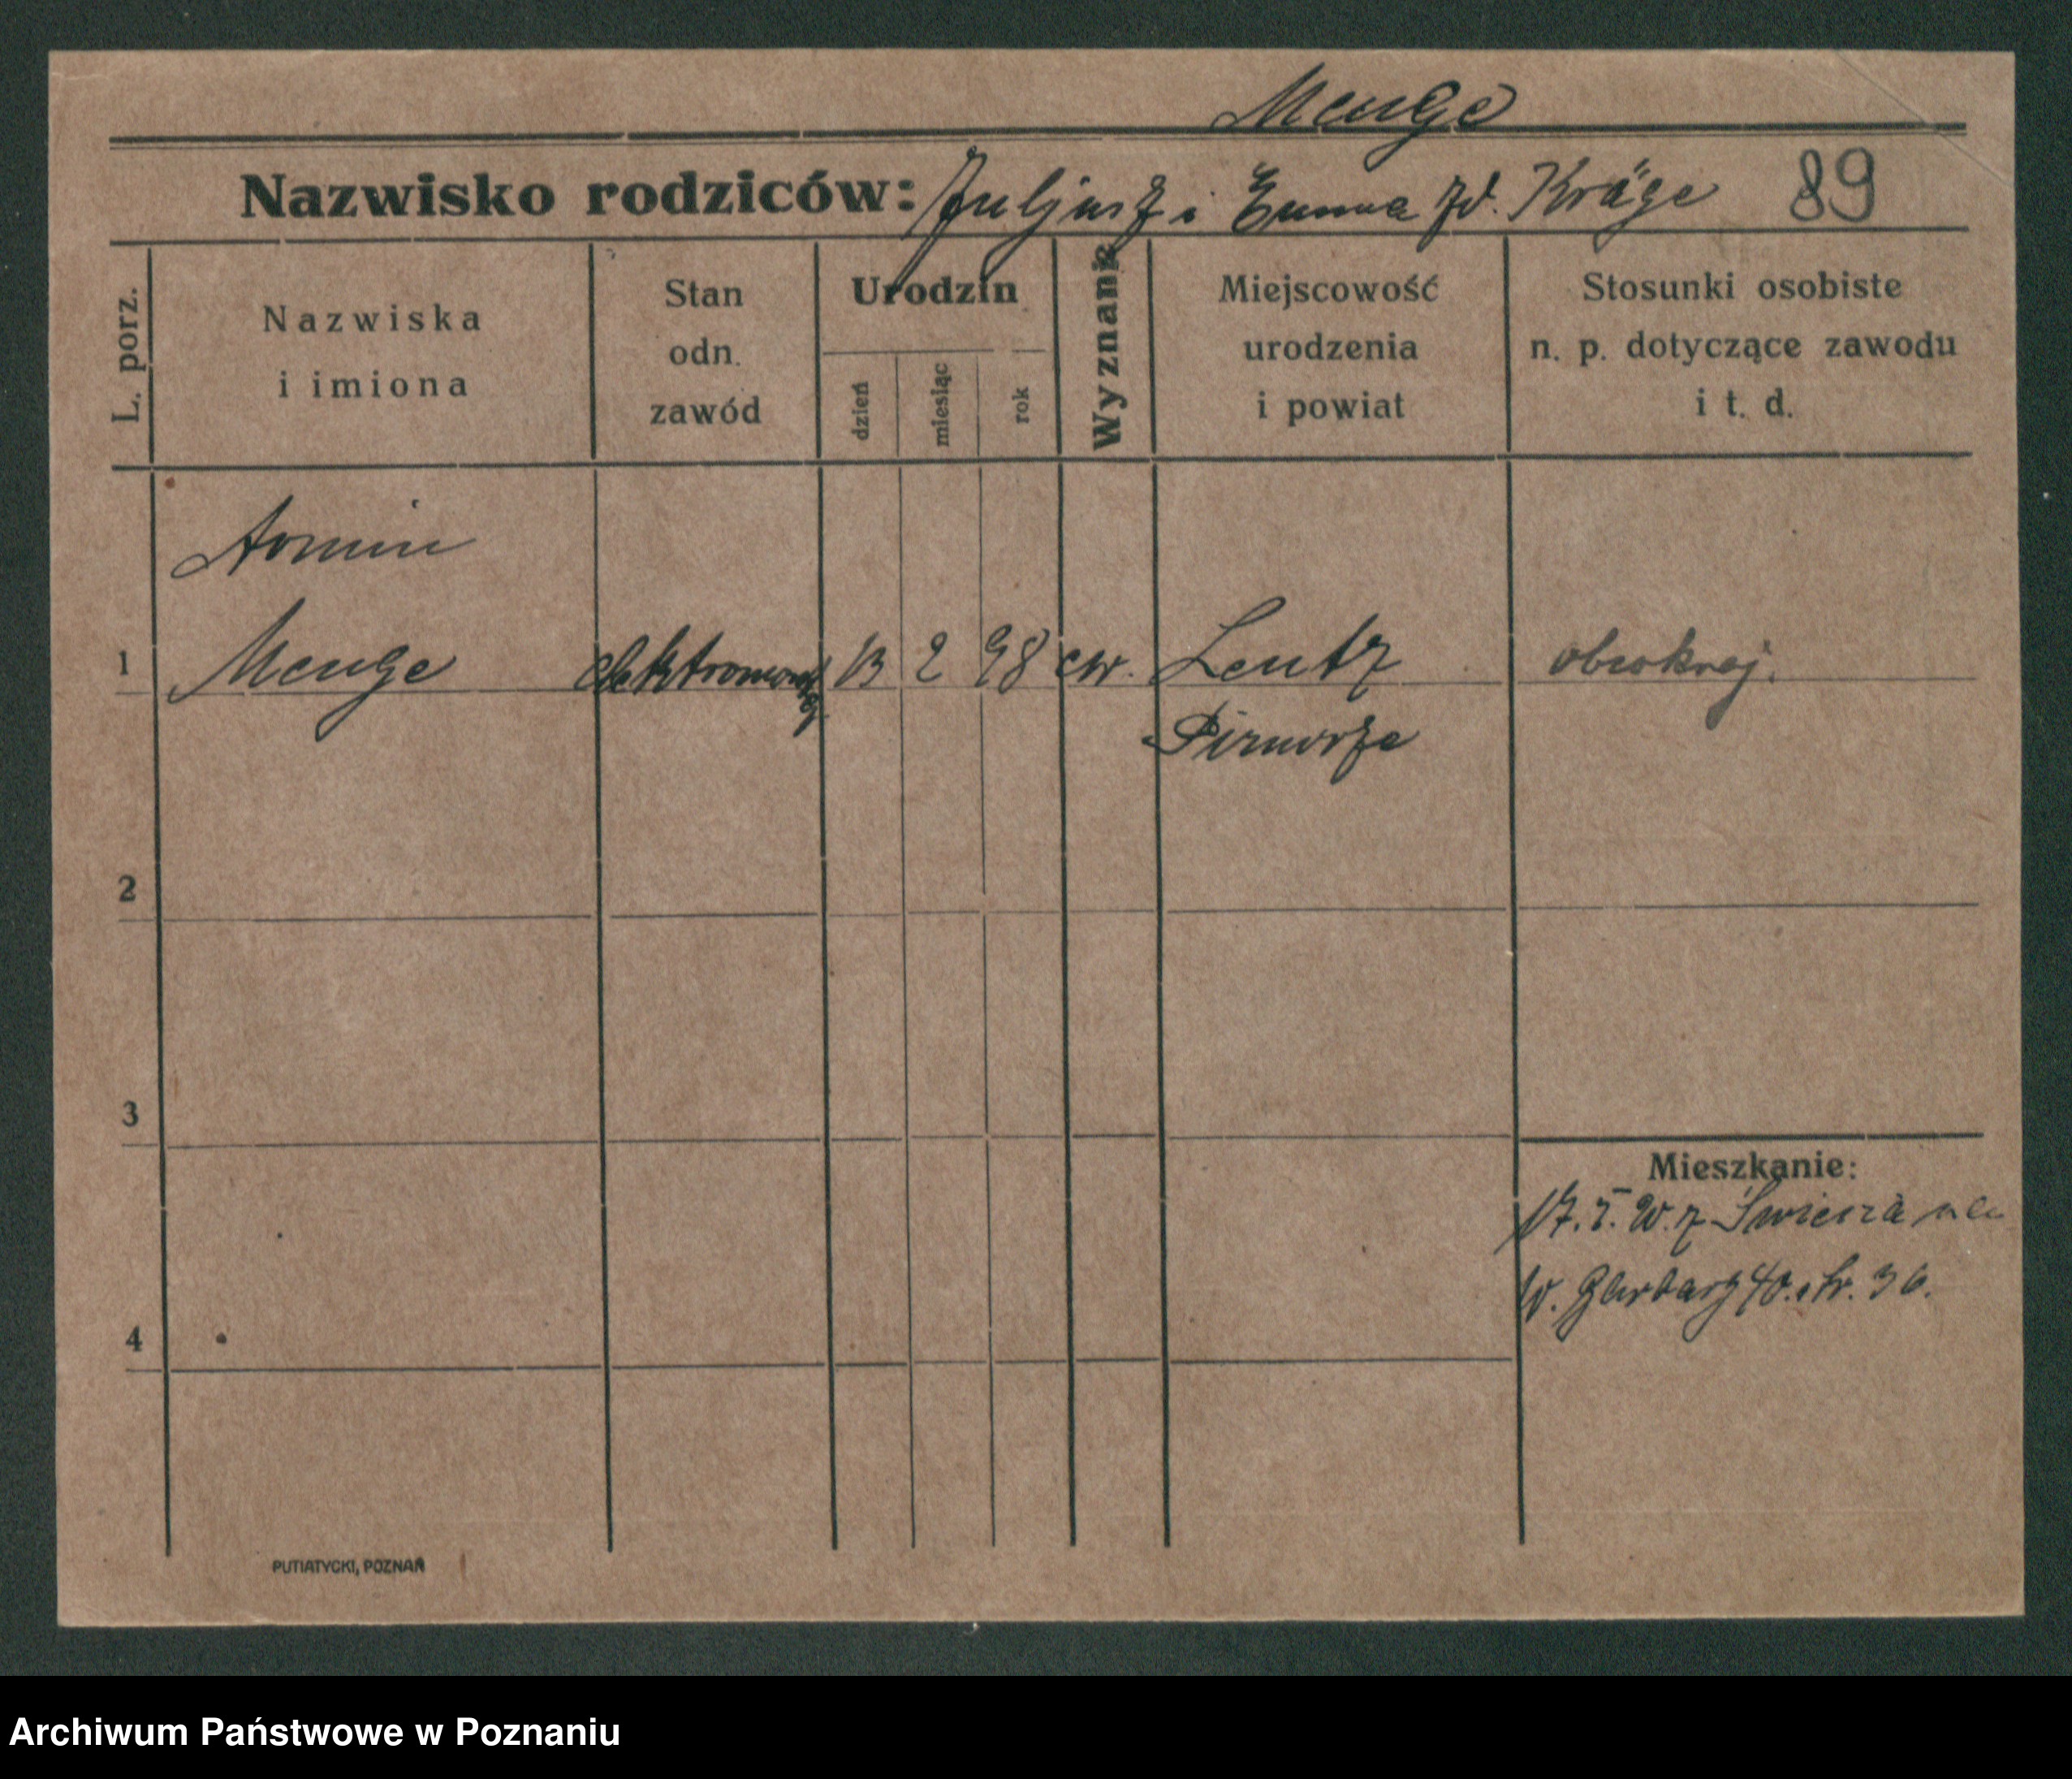 Menge
Nazwisko rodziców: Juljusz i Emma zd. Kräge 89
L. porz.
Nazwiska
i imiona
Stan
odn.
zawód
Urodzin
dzień
miesiąc
rok
Wyznanie
Miejscowość
urodzenia
i powiat
Stosunki osobiste
n. p. dotyczące zawodu
i t. d.
Armin
1 Menge elektromonter 13 2 98 ew. Lentz obcokraj.
2
3
4
Mieszkanie:
W. Garbary 40. 36.
PUTIATYCKI, POZNAŃ
Archiwum Państwowe w Poznaniu